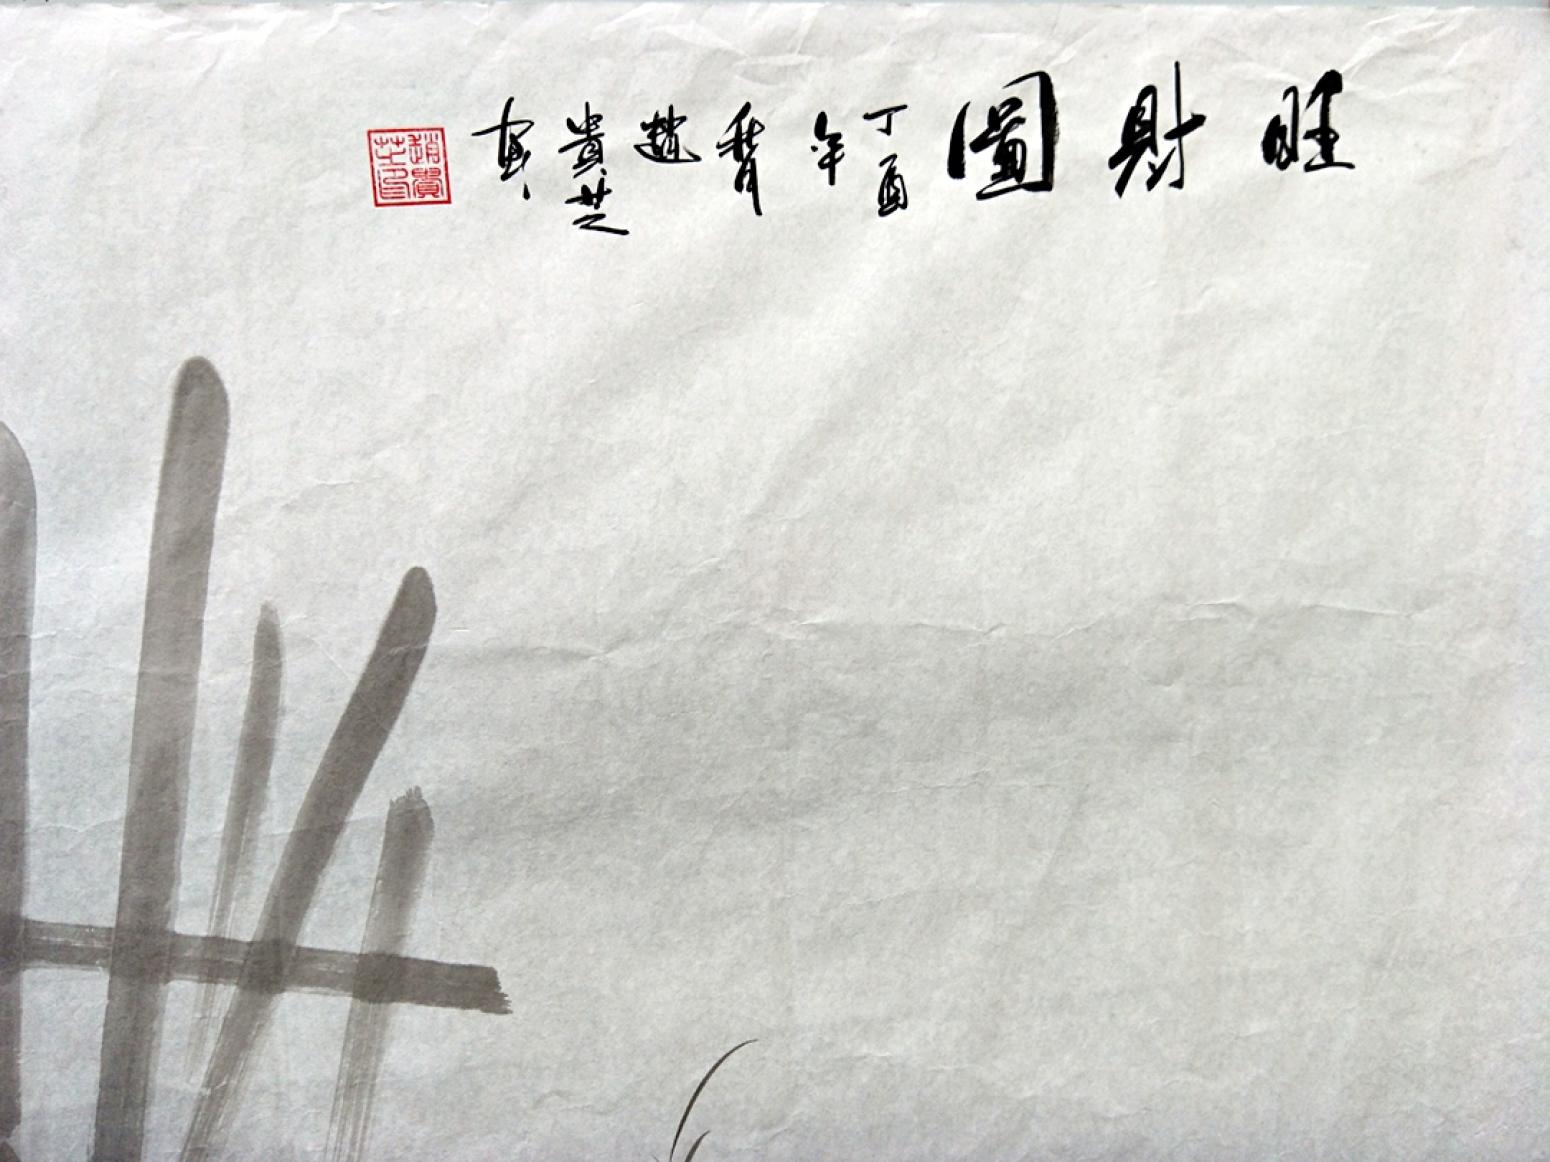 旺財圖
丁酉年
秋月
趙貴芝
寫
趙貴芝印